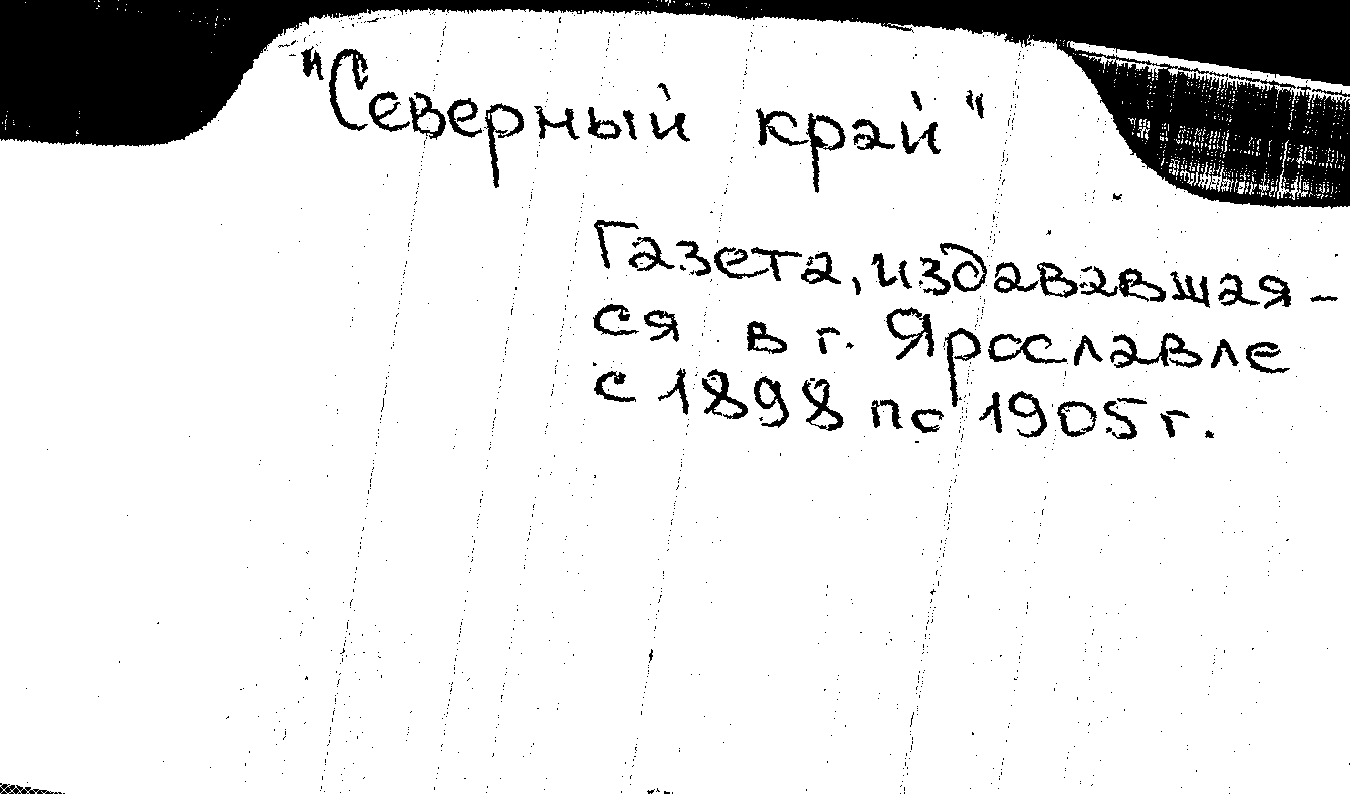 "Северный край"
Газета, издававшая-
ся в г. Ярославле
с 1898 по 1905 г.